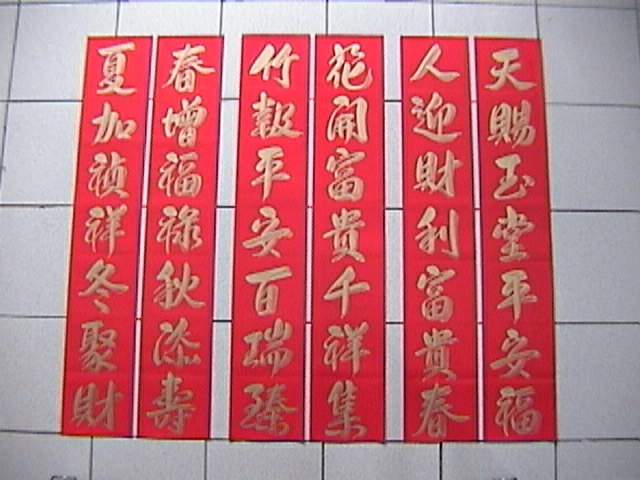 天賜玉堂平安福
人迎財利富貴春
花開富貴千祥集
竹報平安百瑞臻
春增福祿秋添壽
夏加禎祥冬聚財